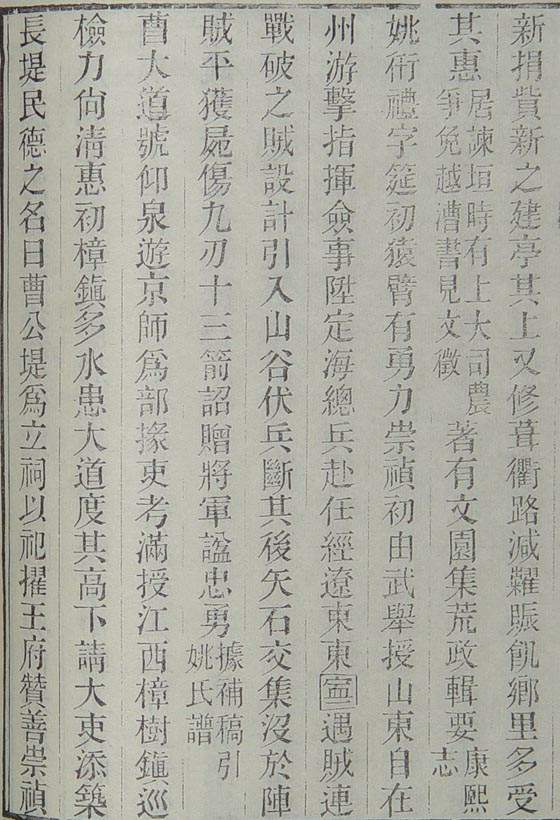 新捐貲新之建亭其上又修葺衢路減糶賑飢鄉里多受
其惠居諫垣時有上大司農爭免越漕書見文徵著有文園集荒政輯要康熙志
姚衙禮字筵初猿臂有勇力崇禎初由武舉授山東自在
州游擊指揮僉事陞定海總兵赴任經遼東東寍遇賊連
戰破之賊設計引入山谷伏兵斷其後矢石交集沒於陣
賊平獲屍傷九刃十三箭詔贈將軍諡忠勇據補稿引姚氏譜
曹大道號仰泉遊京師為部掾吏考滿授江西樟樹鎮巡
檢力尚清惠初樟鎮多水患大道度其高下請大吏添築
長堤民德之名曰曹公堤為立祠以祀擢王府贊善崇禎